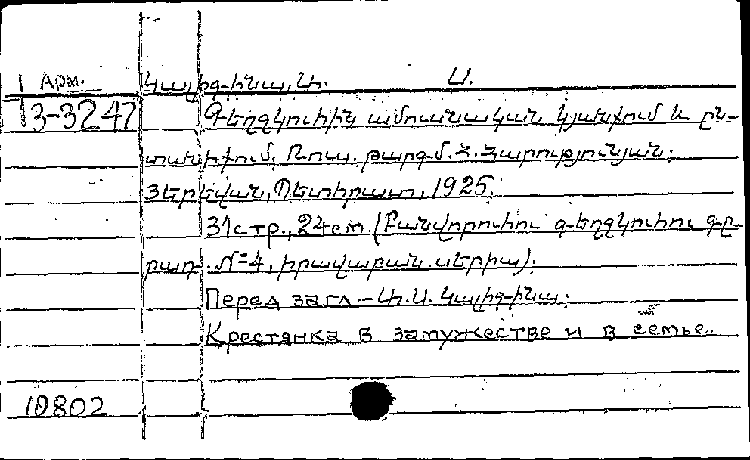 Арм. Կալիգինա, Մ. Ս.
13-3247 Գեղջկուհին ամուսնական կյանքում և ըն-
տանիքում. Ռուս. թարգմ. Հ. Հարությունյան.
Յերեվան, Պետհրատ, 1925.
31 стр., 24 см (Բանվորուհու գեղջկուհու գր
րադ. №4, իրավաբան. սերիա).
Перед загл. – Մ. Ս. Կալիգինա.
Крестянка в замужестве и в семье.
10802